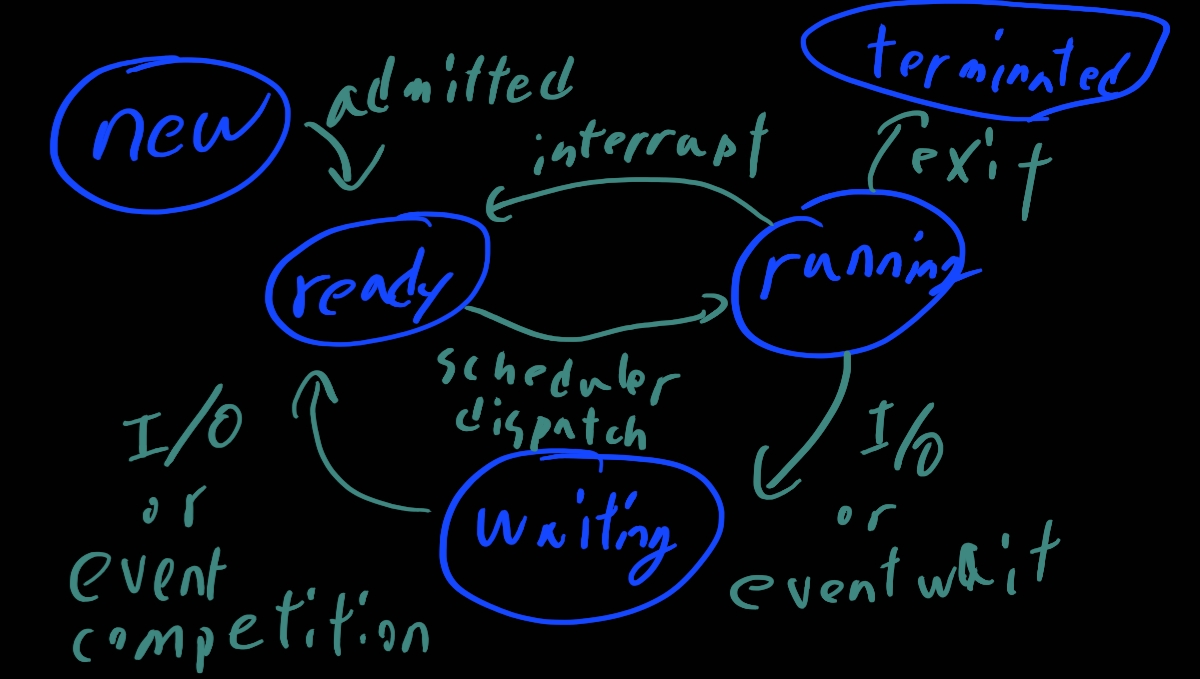 new
admitted
terminated
interrupt
exit
ready
running
scheduler
dispatch
I/O
or
event
competition
waiting
I/O
or
event wait